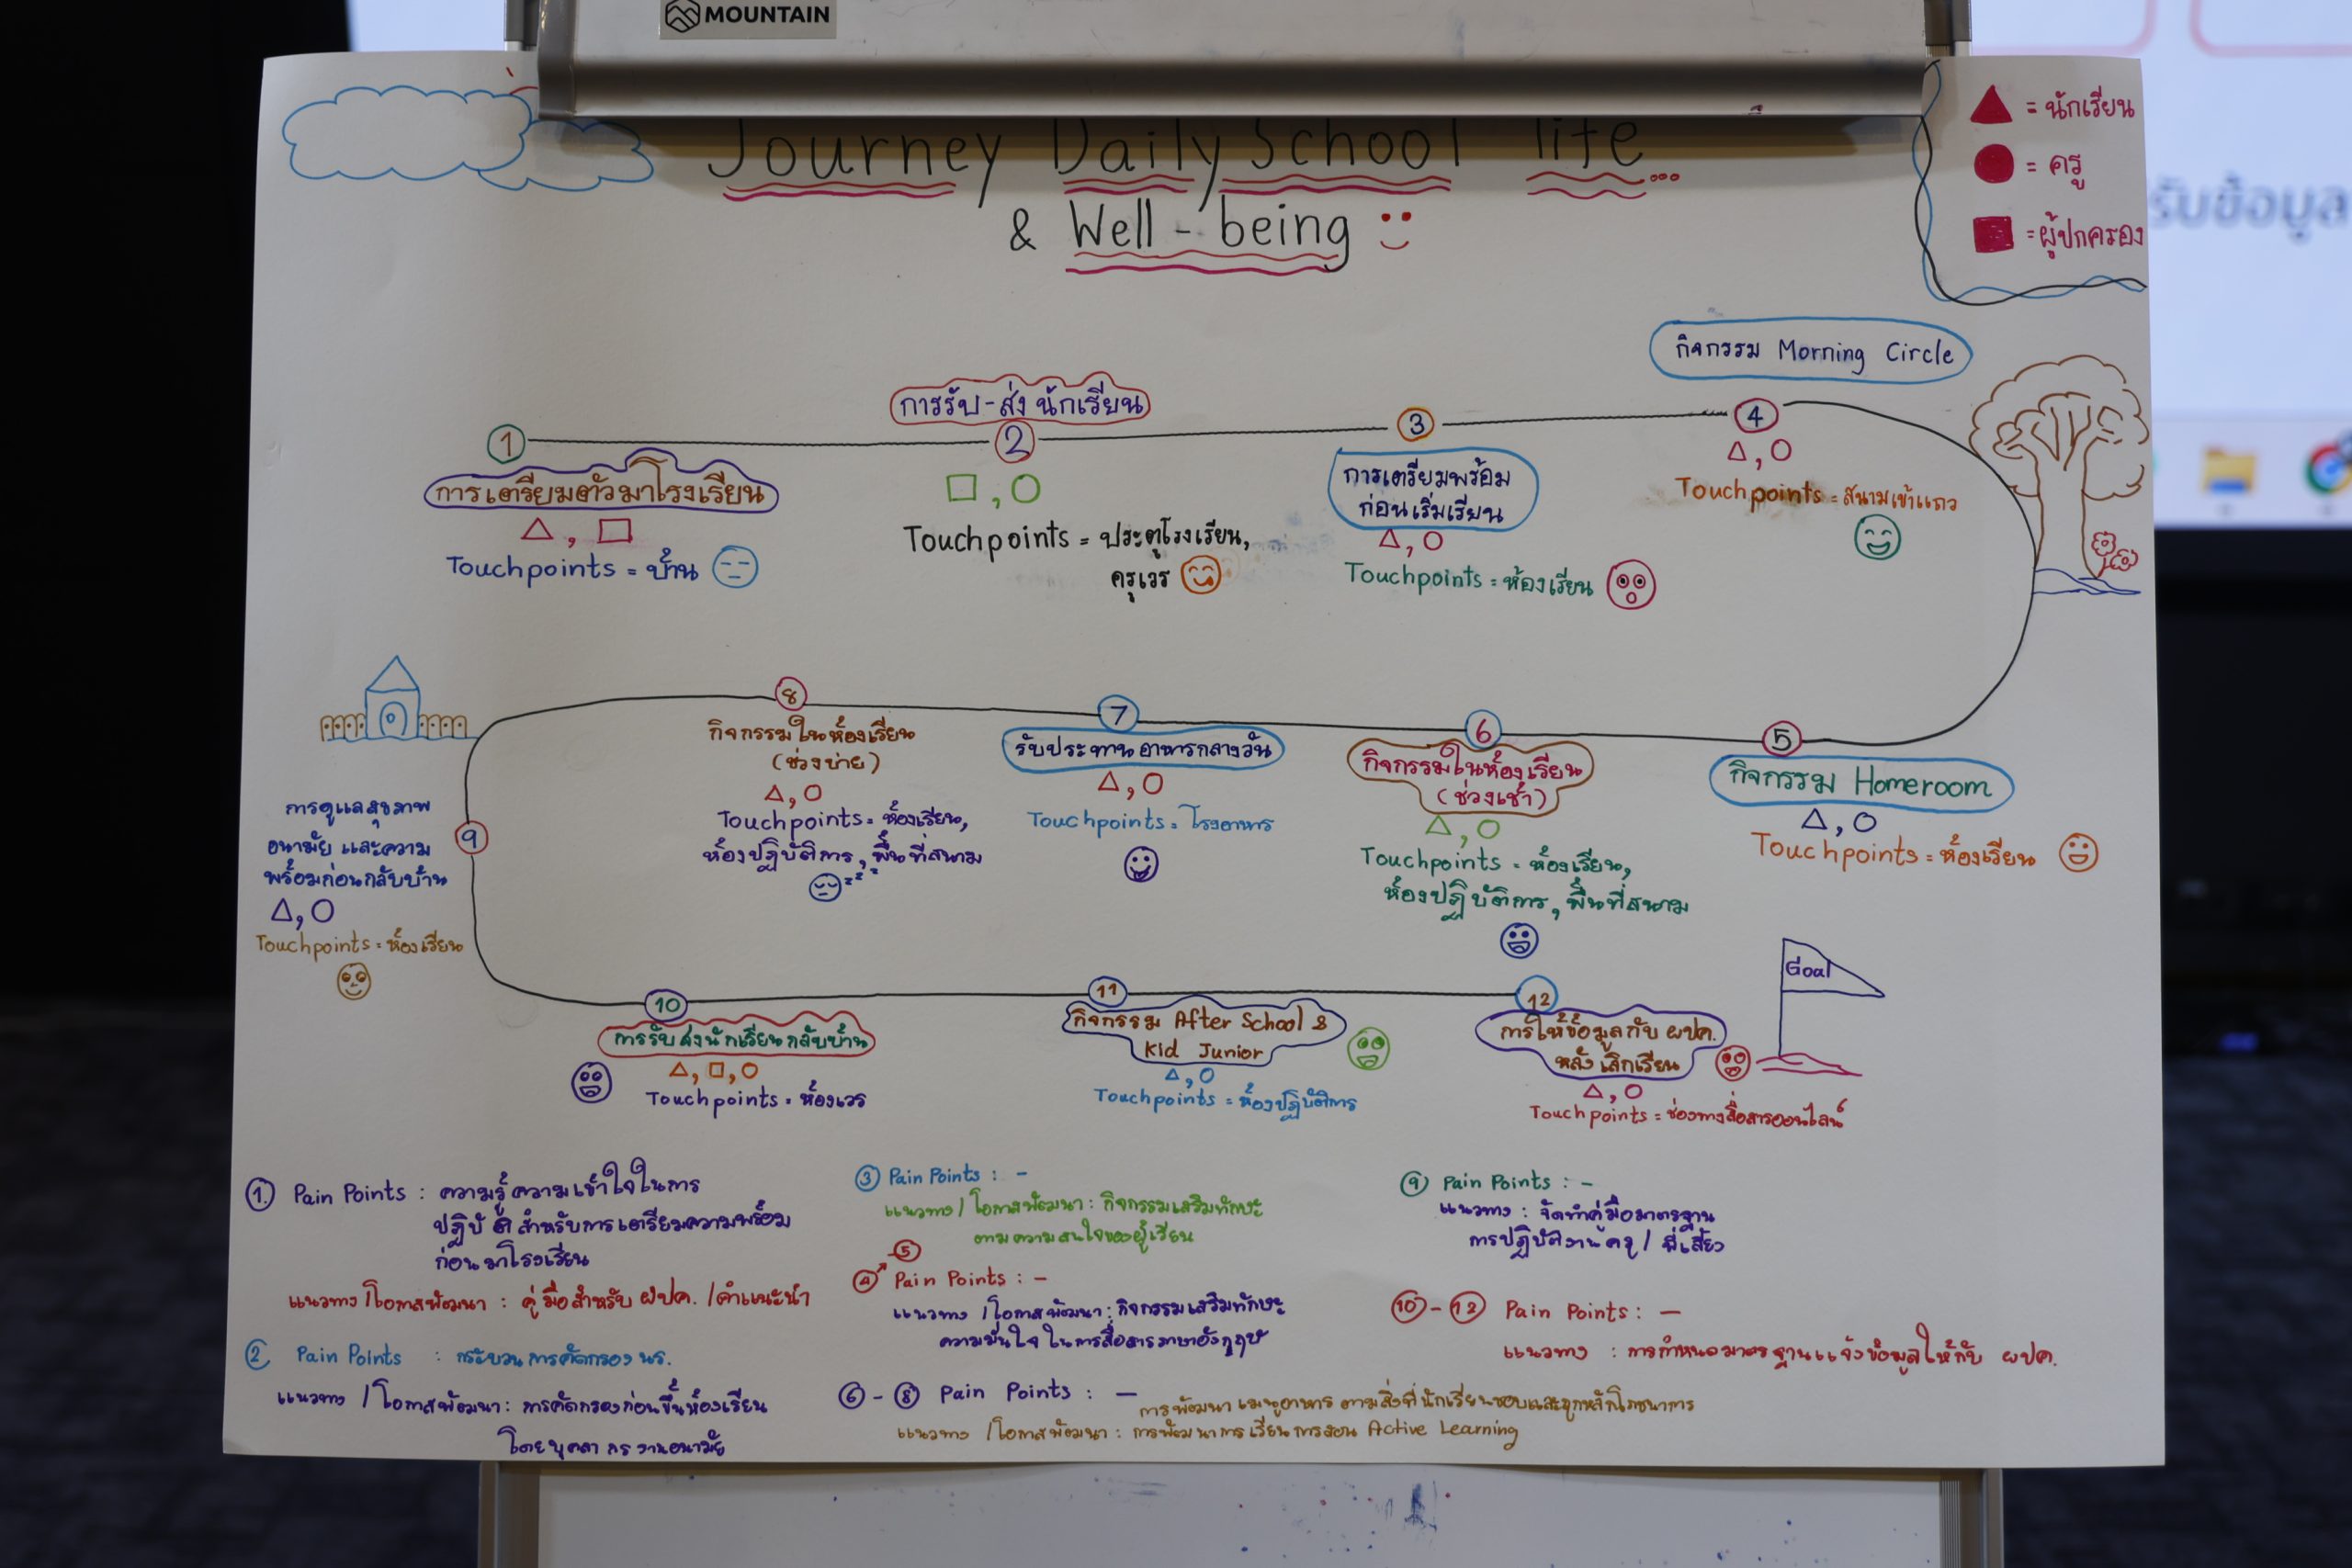 MOUNTAIN
Journey Daily School life...
& Well - being
= นักเรียน
= ครู
= ผู้ปกครอง
รับข้อมูล
1
การเตรียมตัวมาโรงเรียน
Touchpoints = บ้าน
การรับ-ส่ง นักเรียน
2
Touchpoints = ประตูโรงเรียน,
ครูเวร
3
การเตรียมพร้อม
ก่อนเริ่มเรียน
Touchpoints = ห้องเรียน
กิจกรรม Morning Circle
4
Touchpoints = สนามเข้าแถว
5
กิจกรรม Homeroom
Touchpoints = ห้องเรียน
6
กิจกรรมในห้องเรียน
(ช่วงเช้า)
Touchpoints = ห้องเรียน,
ห้องปฏิบัติการ, พื้นที่สนาม
7
รับประทานอาหารกลางวัน
Touchpoints = โรงอาหาร
8
กิจกรรมในห้องเรียน
(ช่วงบ่าย)
Touchpoints = ห้องเรียน,
ห้องปฏิบัติการ, พื้นที่สนาม
zzz
9
การดูแลสุขภาพ
อนามัย และความ
พร้อมก่อนกลับบ้าน
Touchpoints = ห้องเรียน
10
การรับส่งนักเรียนกลับบ้าน
Touchpoints = ห้องเวร
11
กิจกรรม After School &
Kid Junior
Touchpoints = ห้องปฏิบัติการ
12
การให้ข้อมูลกับ ผปค.
หลังเลิกเรียน
Touchpoints = ช่องทางสื่อสารออนไลน์
Goal
1. Pain Points : ความรู้ความเข้าใจในการ
ปฏิบัติสำหรับการเตรียมความพร้อม
ก่อนมาโรงเรียน
แนวทาง/โอกาสพัฒนา : คู่มือสำหรับ ผปค. /คำแนะนำ
2 Pain Points : กระบวนการคัดกรอง นร.
แนวทาง /โอกาสพัฒนา : การคัดกรองก่อนขึ้นห้องเรียน
โดยบุคลากรงานอนามัย
3 Pain Points : -
แนวทาง/โอกาสพัฒนา : กิจกรรมเสริมทักษะ
ตามความสนใจของผู้เรียน
4 - 5 Pain Points : -
แนวทาง /โอกาสพัฒนา : กิจกรรมเสริมทักษะ
ความมั่นใจ ในการสื่อสารภาษาอังกฤษ
6 - 8 Pain Points : -
การพัฒนาเมนูอาหาร ตามสิ่งที่นักเรียนชอบและถูกหลักโภชนาการ
แนวทาง /โอกาสพัฒนา : การพัฒนาการเรียนการสอน Active Learning
9 Pain Points : -
แนวทาง : จัดทำคู่มือมาตรฐาน
การปฏิบัติงานครู / พี่เลี้ยง
10 - 12 Pain Points : -
แนวทาง : การกำหนดมาตรฐานแจ้งข้อมูลให้กับ ผปค.